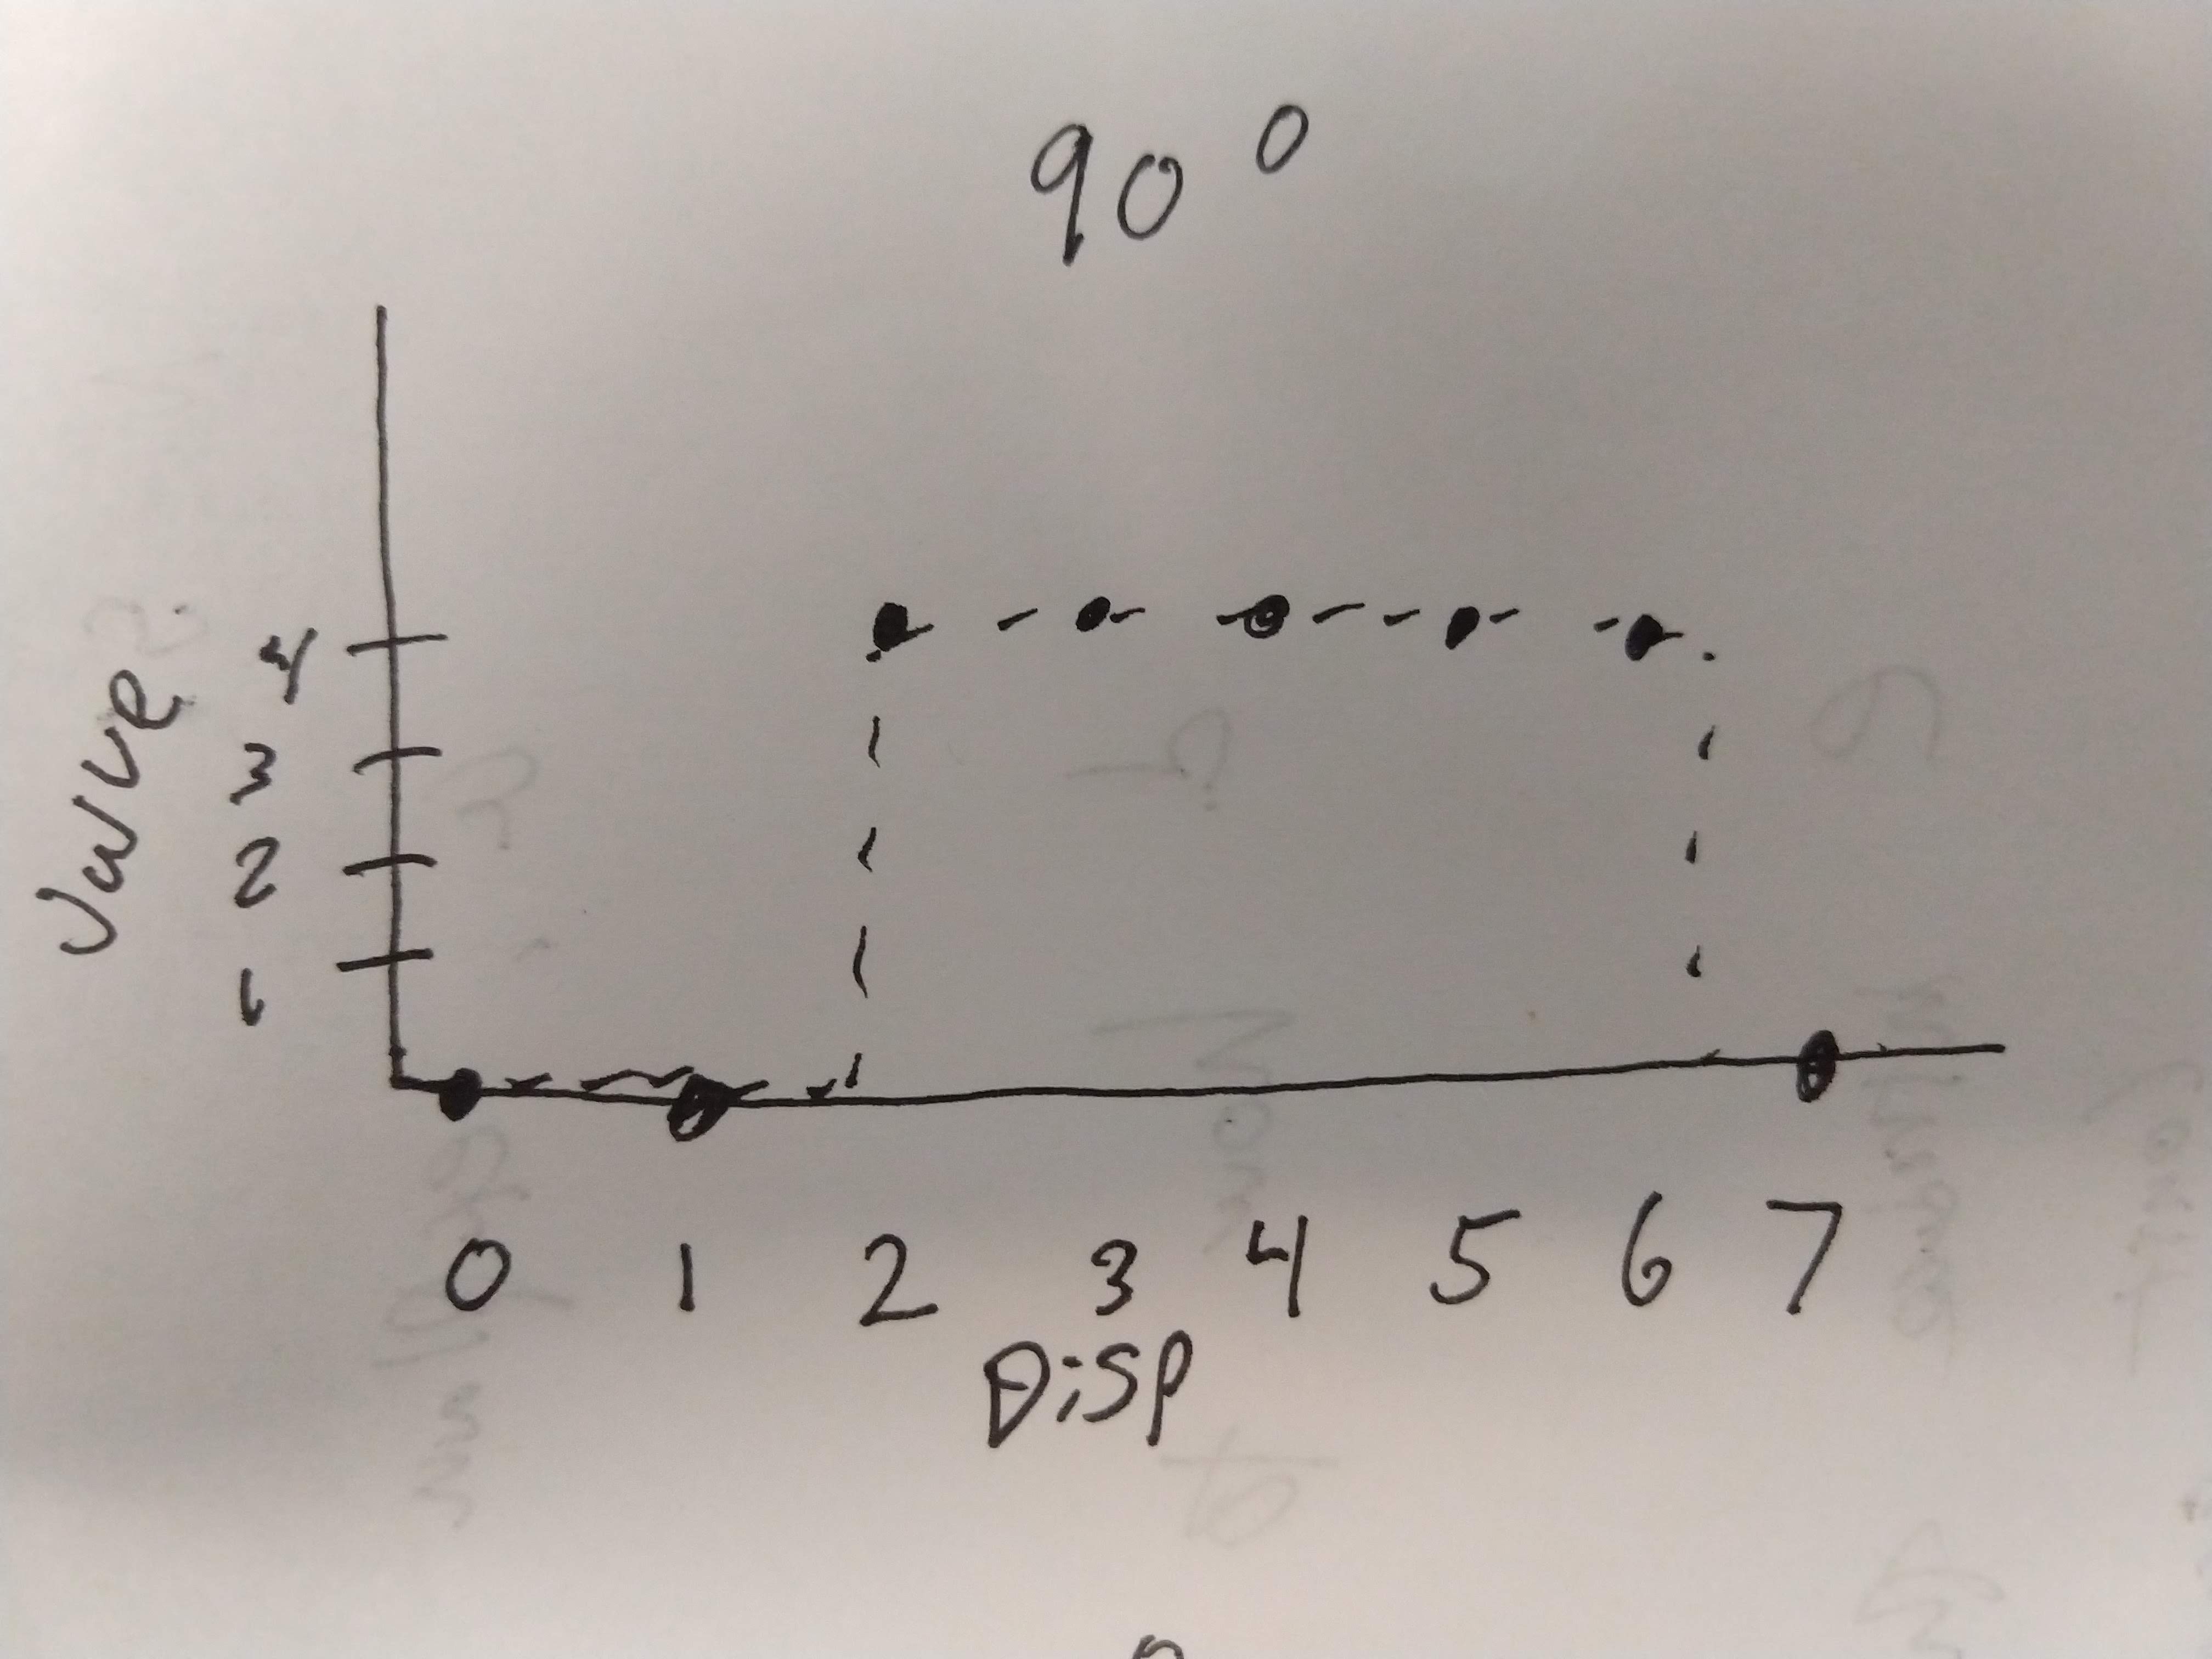 90°
Value
4
3
2
1
0 1 2 3 4 5 6 7
Disp